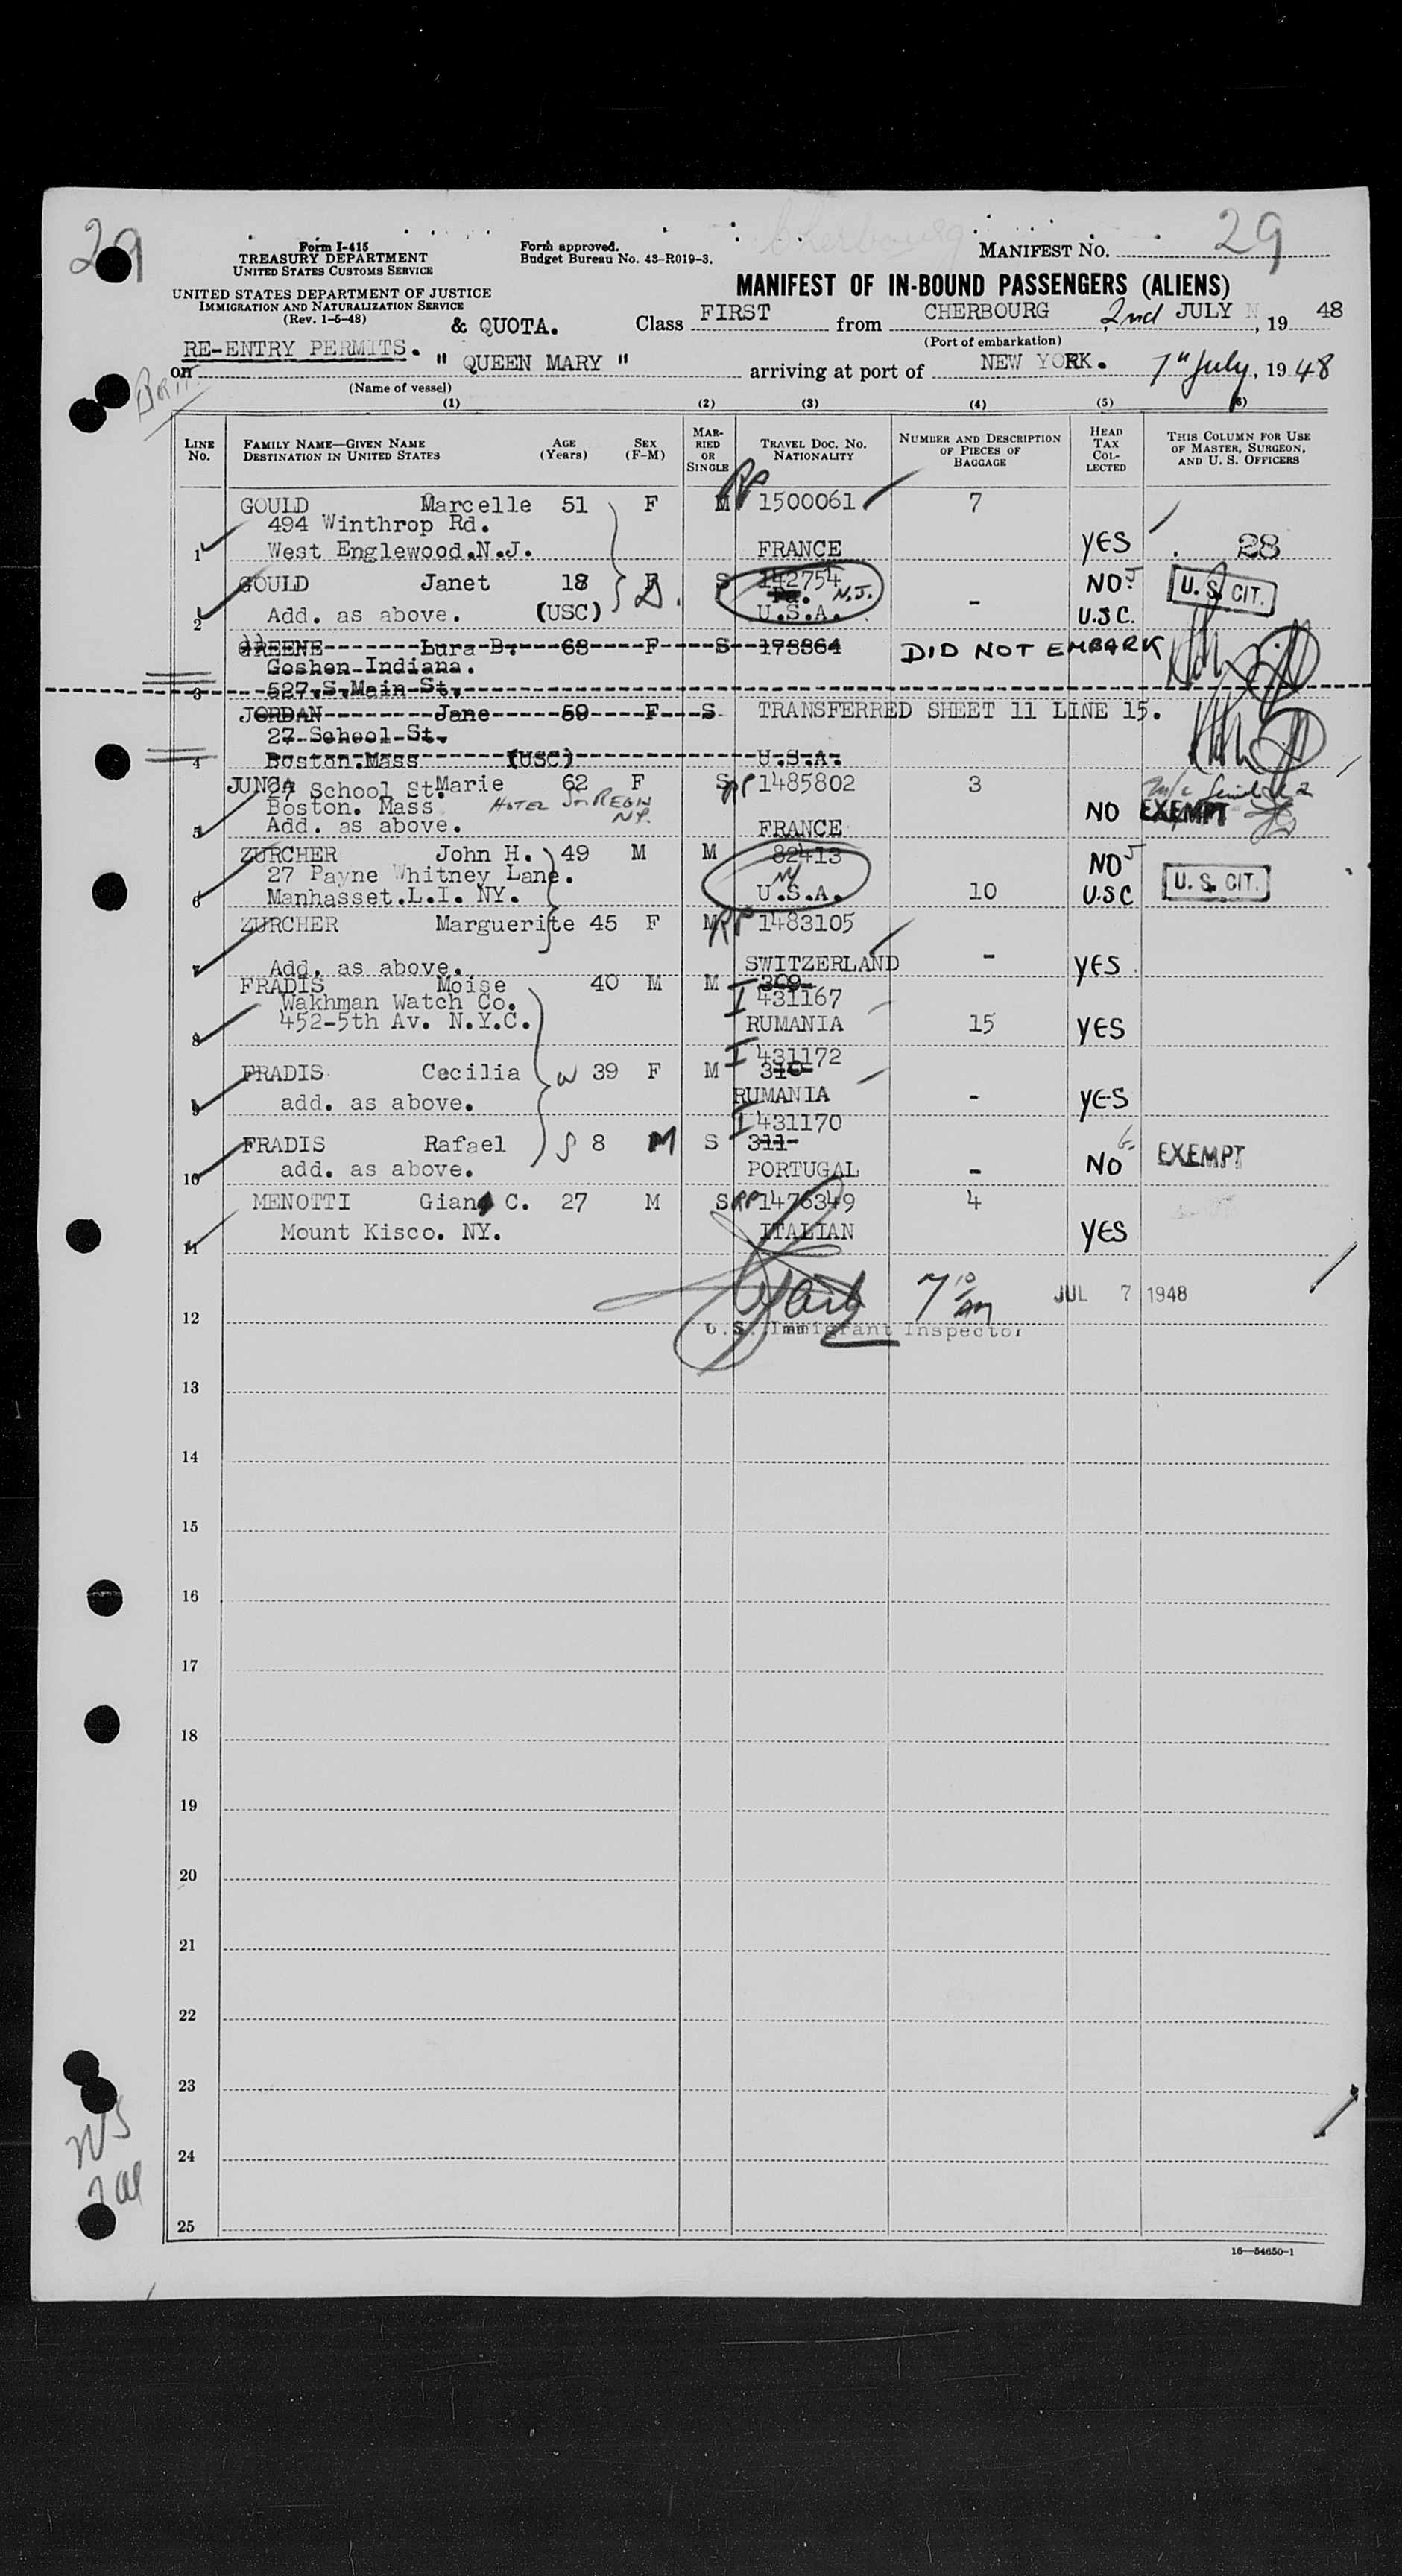 29
Form I-415
TREASURY DEPARTMENT
UNITED STATES CUSTOMS SERVICE
Form approved.
Budget Bureau No. 43-R019-3.
Cherbourg
MANIFEST No. 29
UNITED STATES DEPARTMENT OF JUSTICE
IMMIGRATION AND NATURALIZATION SERVICE
(Rev. 1-5-48)
MANIFEST OF IN-BOUND PASSENGERS (ALIENS)
& QUOTA. Class FIRST from CHERBOURG, 2nd JULY, 19 48
(Port of embarkation)
RE-ENTRY PERMITS.
on " QUEEN MARY " arriving at port of NEW YORK. 7th July, 19 48
(Name of vessel)
(1) (2) (3) (4) (5) (6)
LINE No. FAMILY NAME—GIVEN NAME DESTINATION IN UNITED STATES AGE (Years) SEX (F-M) MARRIED OR SINGLE TRAVEL DOC. No. NATIONALITY NUMBER AND DESCRIPTION OF PIECES OF BAGGAGE HEAD TAX COLLECTED THIS COLUMN FOR USE OF MASTER, SURGEON, AND U. S. OFFICERS
GOULD Marcelle 51 F M RP 1500061 7
494 Winthrop Rd.
1 West Englewood.N.J. FRANCE YES 28
GOULD Janet 18 F S 142754 NO J U. S. CIT.
Pa. N.J.
2 Add. as above. (USC) D. U.S.A. - U.S.C.
GREENE Lura B. 68 F S 178864 DID NOT EMBARK
Goshen Indiana.
3 527.S.Main St.
JORDAN Jane 59 F S TRANSFERRED SHEET 11 LINE 15.
27 School St.
4 Boston.Mass (USC) U.S.A.
JUNGA Marie 62 F S RP 1485802 3
27 School St.
Boston. Mass HOTEL St REGIS NY. NO EXEMPT
5 Add. as above. FRANCE
ZURCHER John H. 49 M M 82413 NO J
27 Payne Whitney Lane. NY U. S. CIT.
6 Manhasset.L.I. NY. U.S.A. 10 U.S.C
ZURCHER Marguerite 45 F M RP 1483105
7 Add. as above. SWITZERLAND - YES.
FRADIS Moise 40 M M 309
Wakhman Watch Co. I 431167
8 452-5th Av. N.Y.C. RUMANIA 15 YES
I 431172
FRADIS Cecilia W 39 F M 310
9 add. as above. RUMANIA - YES
I 431170
FRADIS Rafael S 8 M S 311 EXEMPT
10 add. as above. PORTUGAL - NO
MENOTTI Gian C. 27 M S RP 1476349 4
11 Mount Kisco. NY. ITALIAN YES
7 10 AM JUL 7 1948
12 U.S. Immigrant Inspector
13
14
15
16
17
18
19
20
21
22
23
24
25
16—54650-1